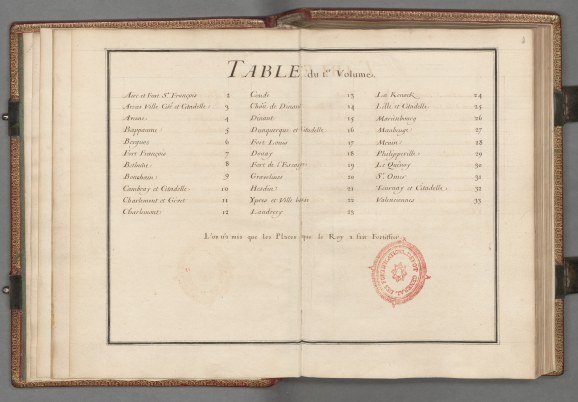 TABLE du 1er Volume.
Aire et Fort St. François 2
Arras Ville Cité et Citadelle 3
Avesne 4
Bapaume 5
Bergues 6
Fort François 7
Bethune 8
Bouchain 9
Cambray et Citadelle 10
Charlemont et Givet 11
Charlemont 12
Condé 13
Chau. de Dinant 14
Dinant 15
Dunquerque et Citadelle 16
Fort Louis 17
Douay 18
Fort de l'Escarpe 19
Gravelines 20
Hesdin 21
Ypres et Ville 22
Landrecy 23
La Kenock 24
Lille et Citadelle 25
Mariembourg 26
Maubeuge 27
Menin 28
Philippeville 29
Le Quesnoy 30
St. Omer 31
Tournay et Citadelle 32
Valenciennes 33
L'on n'a mis que les Places que le Roy a fait Fortifier
DEPOT GENERAL DES FORTIFICATIONS